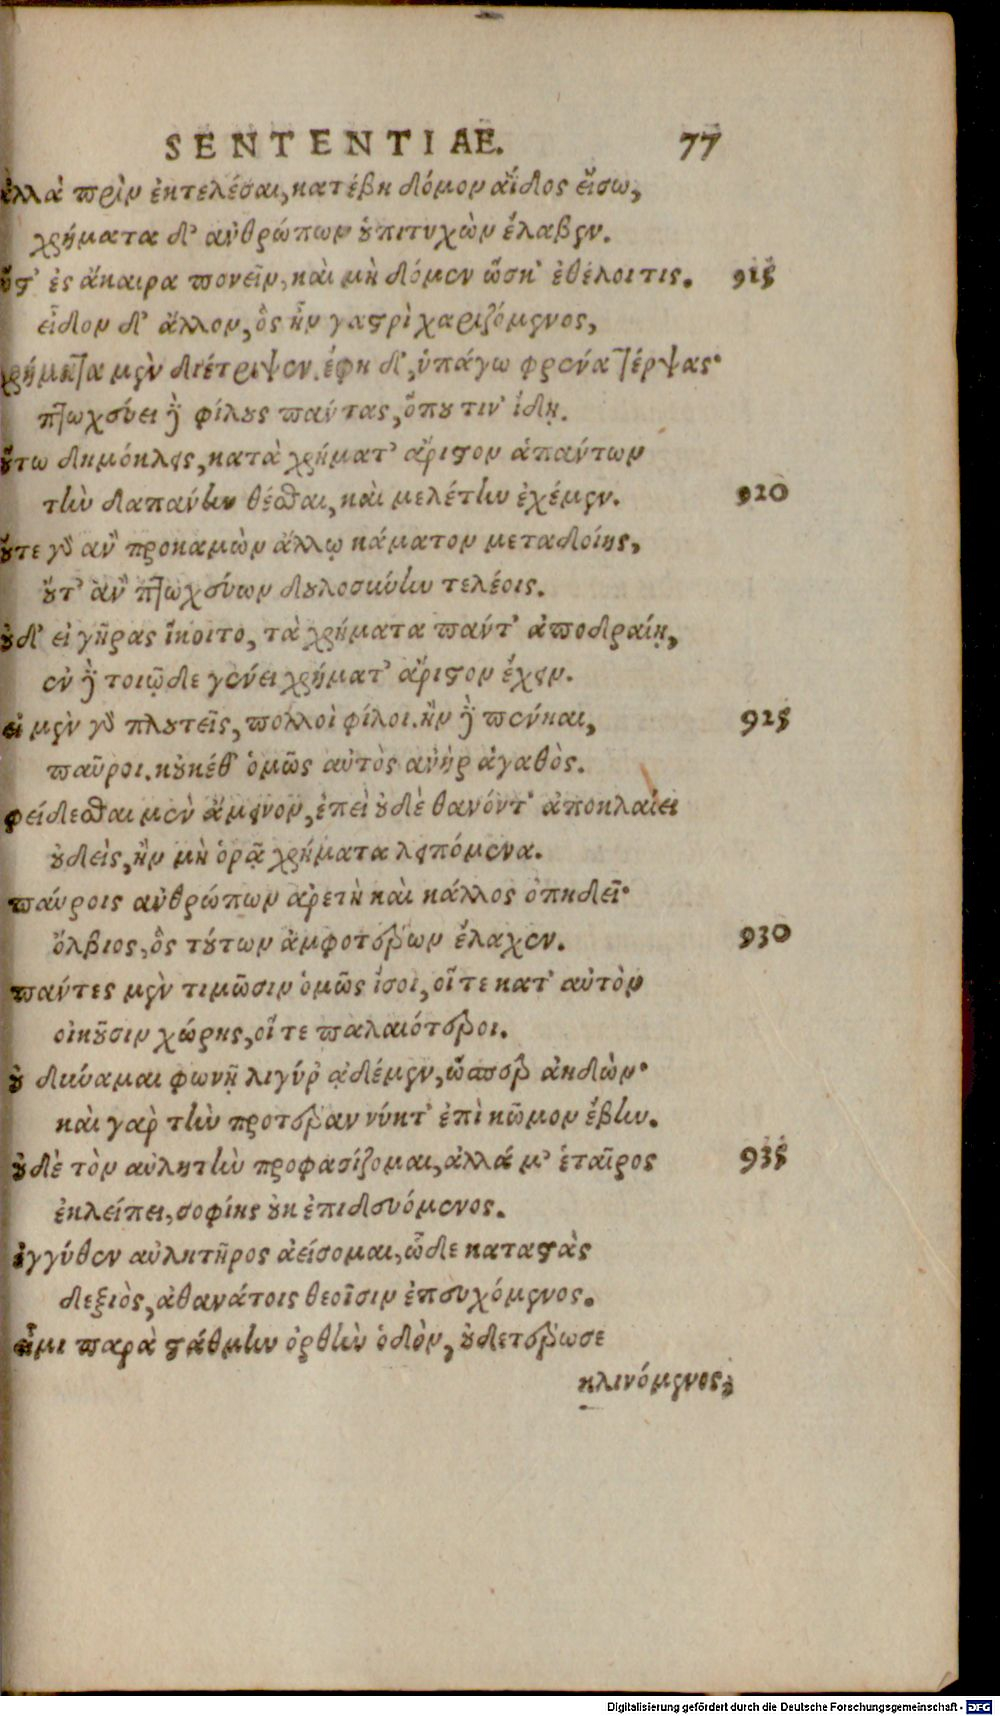 SENTENTIAE. 77
ἀλλὰ πρὶν ἐκτελέσαι, κατέβη δόμον ἄϊδος εἴσω,
χρήματα δ' ἀνθρώπων οὑπιτυχὼν ἔλαβεν.
ὥστ' ἐς ἄκαιρα πονεῖν, καὶ μὴ δόμεν ὧσκ' ἐθέλοι τις. 915
εἶδον δ' ἄλλον, ὃς ἦν γαστρὶ χαριζόμενος,
χρήματα μὲν διέτριψεν. ἔφη δ', ὑπάγω φρένα τέρψας·
πτωχεύει δὲ φίλους πάντας, ὅπου τιν' ἴδῃ.
οὕτω δημόκλεις, κατὰ χρήματ' ἄριστον ἁπάντων
τὴν δαπάνην θέσθαι, καὶ μελέτην ἐχέμεν. 920
οὔτε γὰρ ἂν προκαμὼν ἄλλῳ κάματον μεταδοίης,
οὔτ' ἂν πτωχεύων δουλοσύνην τελέοις.
οὐδ' εἰ γῆρας ἵκοιτο, τὰ χρήματα πάντ' ἀποδραίη,
ἐν δὲ τοιῷδε γένει χρήματ' ἄριστον ἔχειν.
εἰ μὲν γὰρ πλουτεῖς, πολλοὶ φίλοι. ἢν δὲ πένηαι, 925
παῦροι. κοὐκέθ' ὁμῶς αὐτὸς ἀνὴρ ἀγαθὸς.
φείδεσθαι μὲν ἄμεινον, ἐπεὶ οὐδὲ θανόντ' ἀποκλαίει
οὐδεὶς, ἢν μὴ ὁρᾷ χρήματα λειπόμενα.
παύροις ἀνθρώπων ἀρετὴ καὶ κάλλος ὀπηδεῖ·
ὄλβιος, ὃς τούτων ἀμφοτέρων ἔλαχεν. 930
πάντες μὲν τιμῶσιν ὁμῶς ἴσοι, οἵ τε κατ' αὐτὸν
οἰκοῦσιν χώρης, οἵ τε παλαιότεροι.
οὐ δύναμαι φωνῇ λιγύρ' ᾀδέμεν, ὥσπερ ἀηδών·
καὶ γὰρ τὴν προτέραν νύκτ' ἐπὶ κῶμον ἔβην.
οὐδὲ τὸν αὐλητὴν προφασίζομαι, ἀλλά μ' ἑταῖρος 935
ἐκλείπει, σοφίης οὐκ ἐπιδευόμενος.
ἐγγύθεν αὐλητῆρος ἀείσομαι, ὧδε καταστὰς
δεξιὸς, ἀθανάτοις θεοῖσιν ἐπευχόμενος.
εἶμι παρὰ στάθμην ὀρθὴν ὁδὸν, οὐδετέρωσε
κλινόμενος,
Digitalisierung gefördert durch die Deutsche Forschungsgemeinschaft - DFG